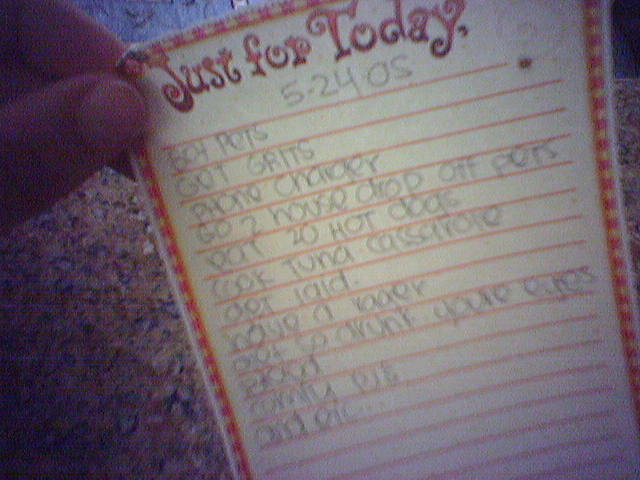 Just for Today,
5-24 05
BOY PETS
GET GRITS
PHONE Charger
GO 2 house drop off pets
eat 20 HOT dogs
cook tuna casserole
get laid.
have a rager
get so drunk youre eyes
bleed
vomit etc
and etc...